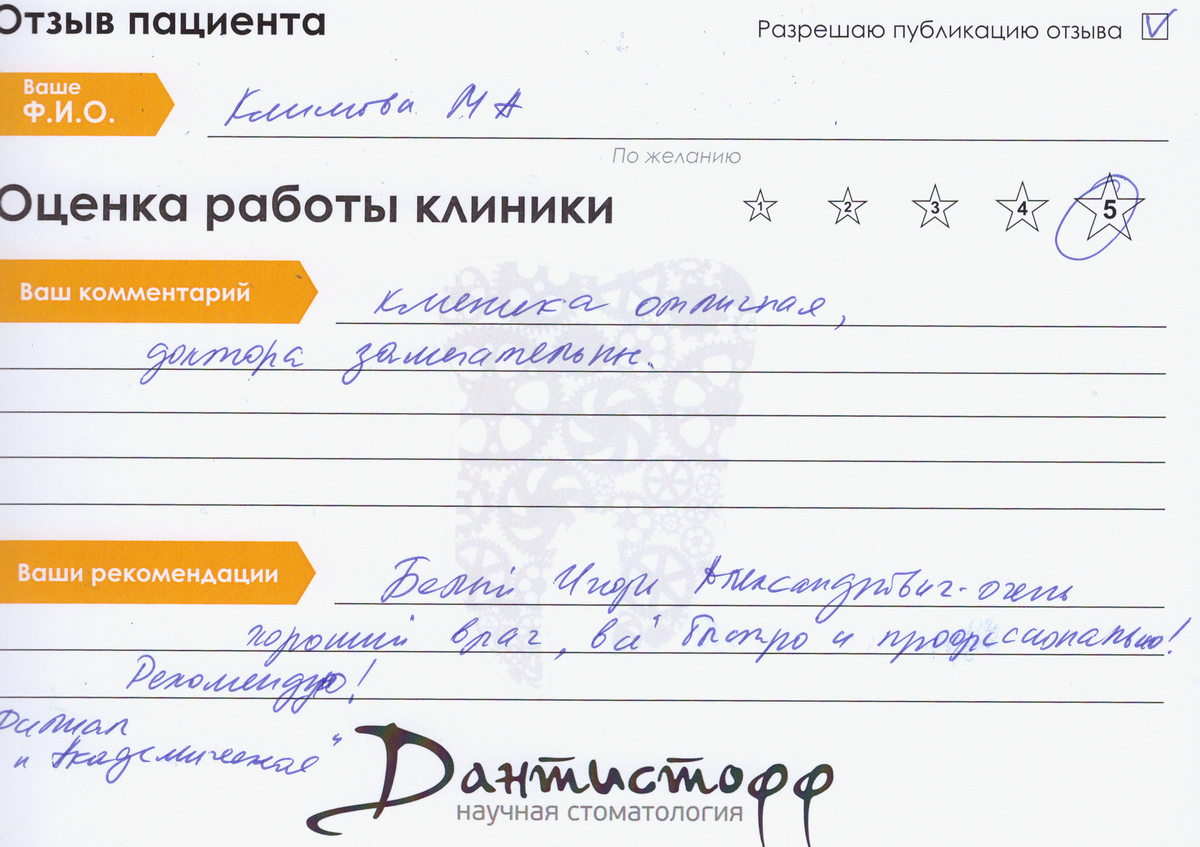 Отзыв пациента
Разрешаю публикацию отзыва
Ваше
Ф.И.О.
Климова М А
По желанию
Оценка работы клиники
1 2 3 4 5
Ваш комментарий
клиника отличная,
доктора замечательны.
Ваши рекомендации
Белый Игорь Александрович - очень
хороший врач, всё быстро и профессионально!
Рекомендую!
Филиал
"Академическая"
Дантистофф
научная стоматология